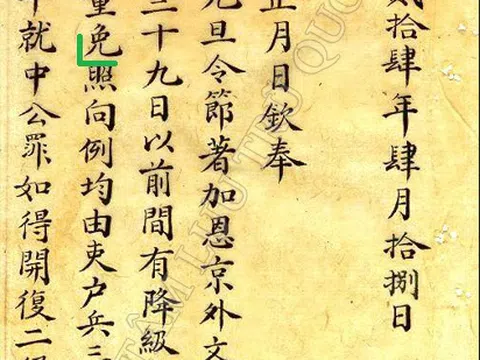 貳拾肆年肆月拾捌日
正月日欽奉
元旦令節著加恩京外文
三十九日以前間有降級
免照向例均由吏户兵三
就中公罪如得開復二
TRUNG TÂM LƯU TRỮ QUỐC